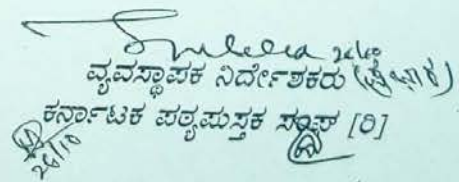 26/10
ವ್ಯವಸ್ಥಾಪಕ ನಿರ್ದೇಶಕರು (ಪ್ರಭಾರ)
ಕರ್ನಾಟಕ ಪಠ್ಯಪುಸ್ತಕ ಸಂಘ [ರಿ]
26/10